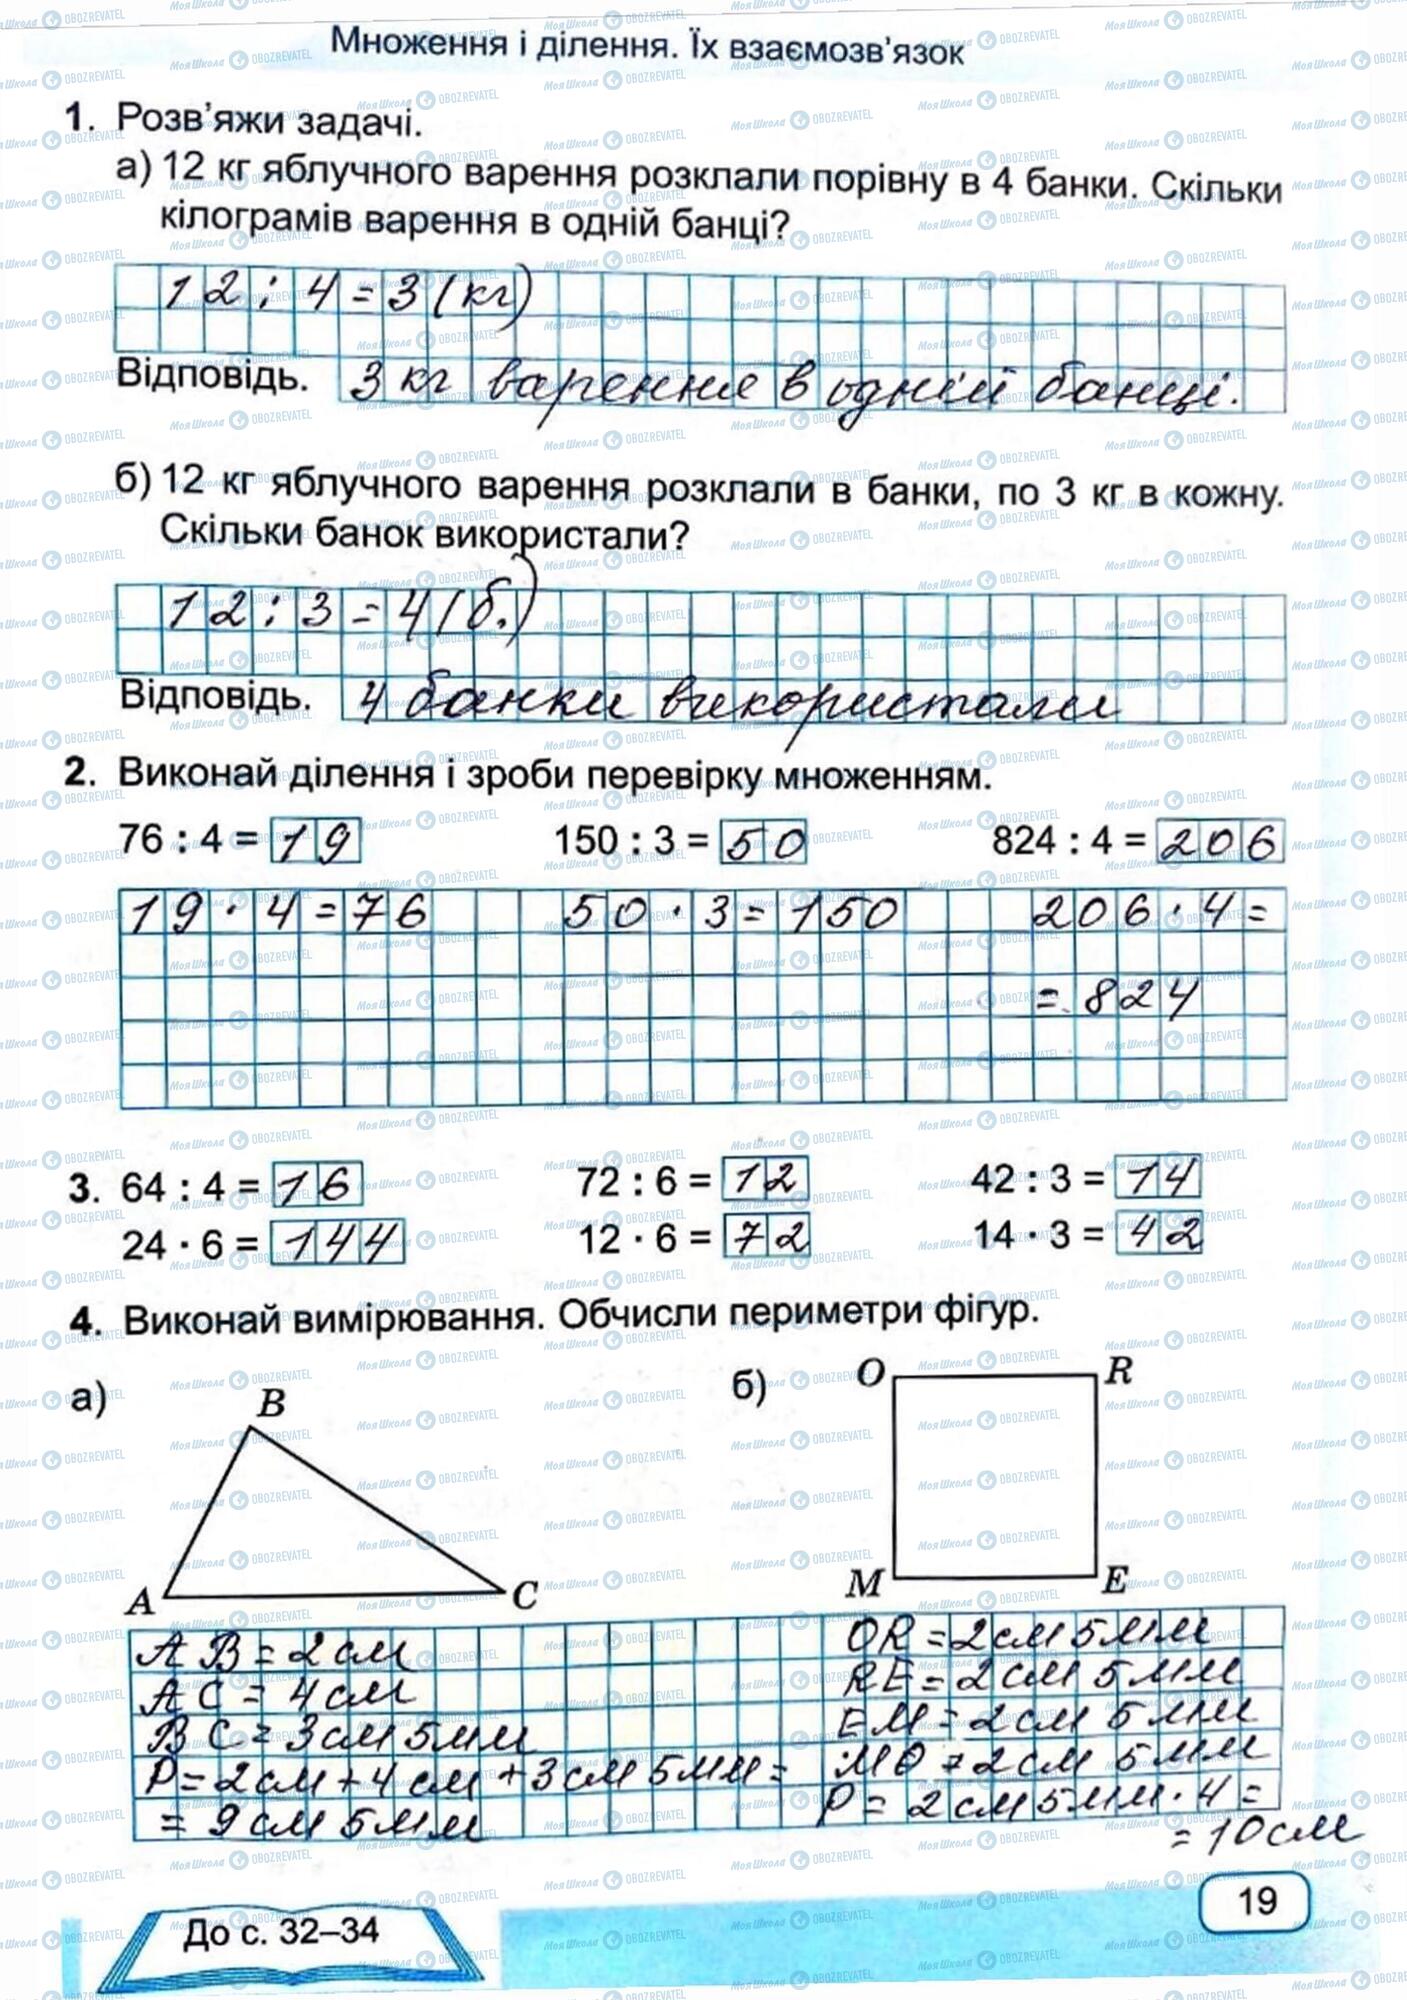 Множення і ділення. Їх взаємозв'язок
1. Розв'яжи задачі.
а) 12 кг яблучного варення розклали порівну в 4 банки. Скільки
кілограмів варення в одній банці?
12 : 4 = 3 (кг)
Відповідь. 3 кг варення в одній банці.
б) 12 кг яблучного варення розклали в банки, по 3 кг в кожну.
Скільки банок використали?
12 : 3 = 4 (б.)
Відповідь. 4 банки використали
2. Виконай ділення і зроби перевірку множенням.
76 : 4 = 19 150 : 3 = 50 824 : 4 = 206
19 · 4 = 76 50 · 3 = 150 206 · 4 =
= 824
3. 64 : 4 = 16 72 : 6 = 12 42 : 3 = 14
24 · 6 = 144 12 · 6 = 72 14 · 3 = 42
4. Виконай вимірювання. Обчисли периметри фігур.
а) B A C
б) O R M E
AB = 2 см
AC = 4 см
BC = 3 см 5 мм
P = 2 см + 4 см + 3 см 5 мм =
= 9 см 5 мм
OR = 2 см 5 мм
RE = 2 см 5 мм
EM = 2 см 5 мм
MO = 2 см 5 мм
P = 2 см 5 мм · 4 =
= 10 см
До с. 32–34
19
МояШкола OBOZREVATEL